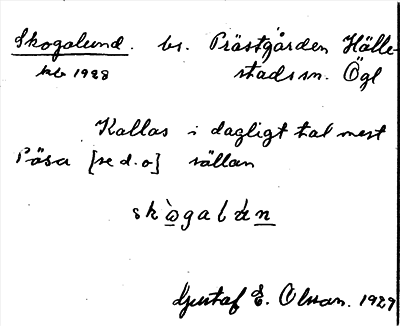 Skogalund. bs. Prästgården Hälle-
kb 1928 stads sn. Ögl
Kallas i dagligt tal mest
Påsa [se d. o] sällan
skògalún
Gustaf E. Olsson. 1929